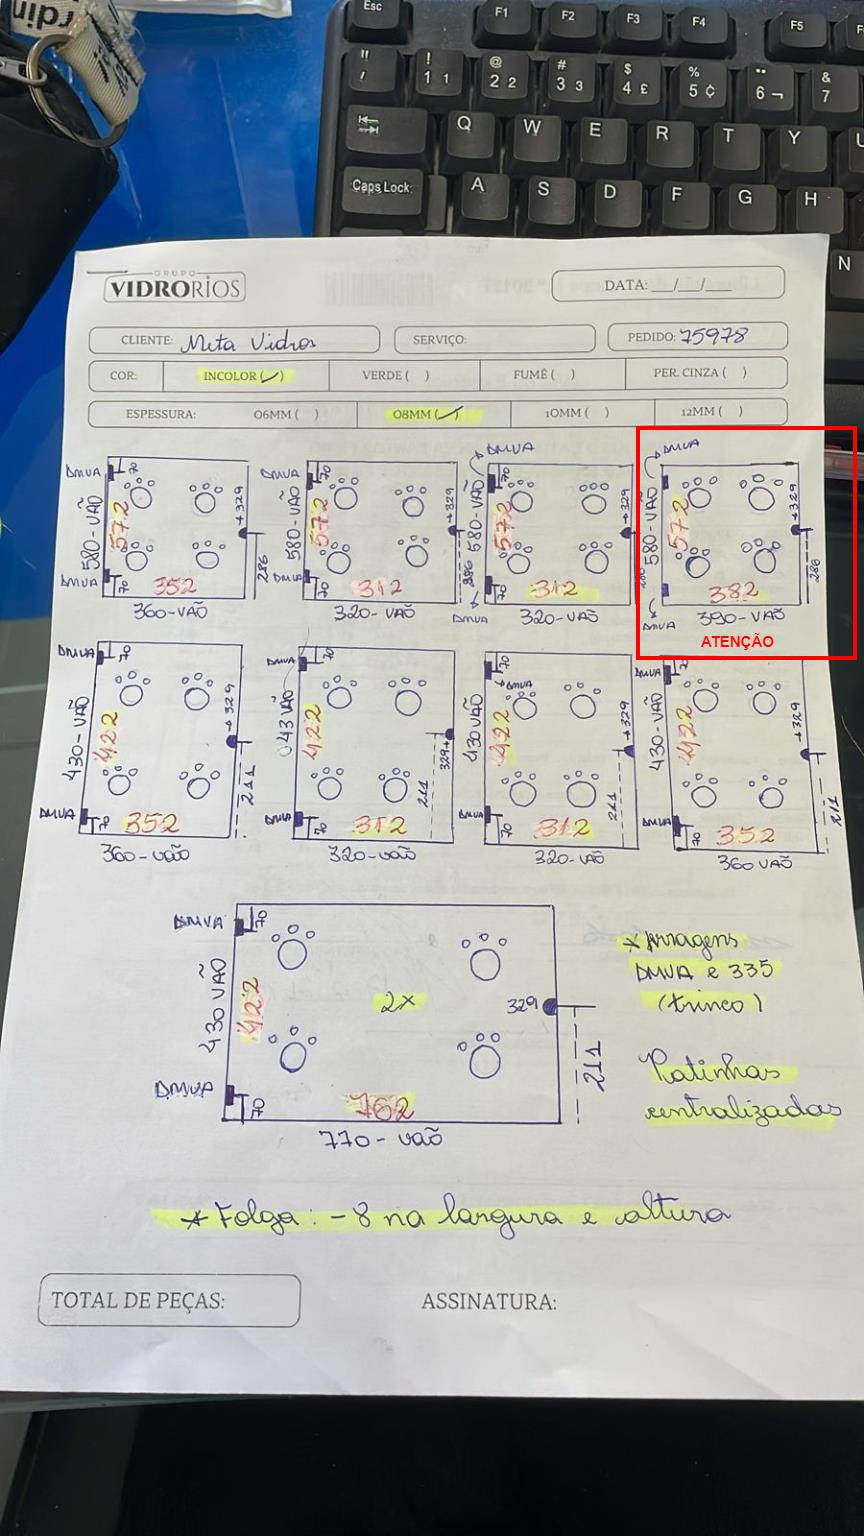 rdin
Esc F1 F2 F3 F4 F5
" / ! 1 1 @ 2 2 # 3 3 $ 4 £ % 5 ¢ ¨ 6 ¬ & 7
Q W E R T Y
Caps Lock A S D F G H
N
GRUPO
VIDRORIOS
DATA: __/__/__
CLIENTE: Meta Vidros SERVIÇO: PEDIDO: 75978
COR: INCOLOR (✓) VERDE ( ) FUMÊ ( ) PER. CINZA ( )
ESPESSURA: 06MM ( ) 08MM (✓) 10MM ( ) 12MM ( )
DMVA 70 580-VÃO 572 329 286 DMVA 70 352
360-VÃO
DMVA 70 580-VÃO 572 329 286 DMVA 70 312
320-VÃO
DMVA 70 580-VÃO 572 329 DMVA 70 312
320-VÃO
DMVA 580-VÃO 572 329 286 DMVA 382
390-VÃO
ATENÇÃO
DMVA 70 430-VÃO 422 329 211 DMVA 70 352
360-VÃO
DMVA 70 43 VÃO 422 329 211 DMVA 70 312
320-VÃO
70 DMVA 430 VÃO 422 329 211 DMVA 70 312
320-VÃO
DMVA 70 430-VÃO 422 329 211 DMVA 70 352
360 VÃO
DMVA 70 430 VÃO 422 2X 329 211 DMVA 70 762
770-VÃO
* ferragens
DMVA e 335
(trinco)
Patinhas
centralizadas
* Folga: -8 na largura e altura
TOTAL DE PEÇAS: ASSINATURA: